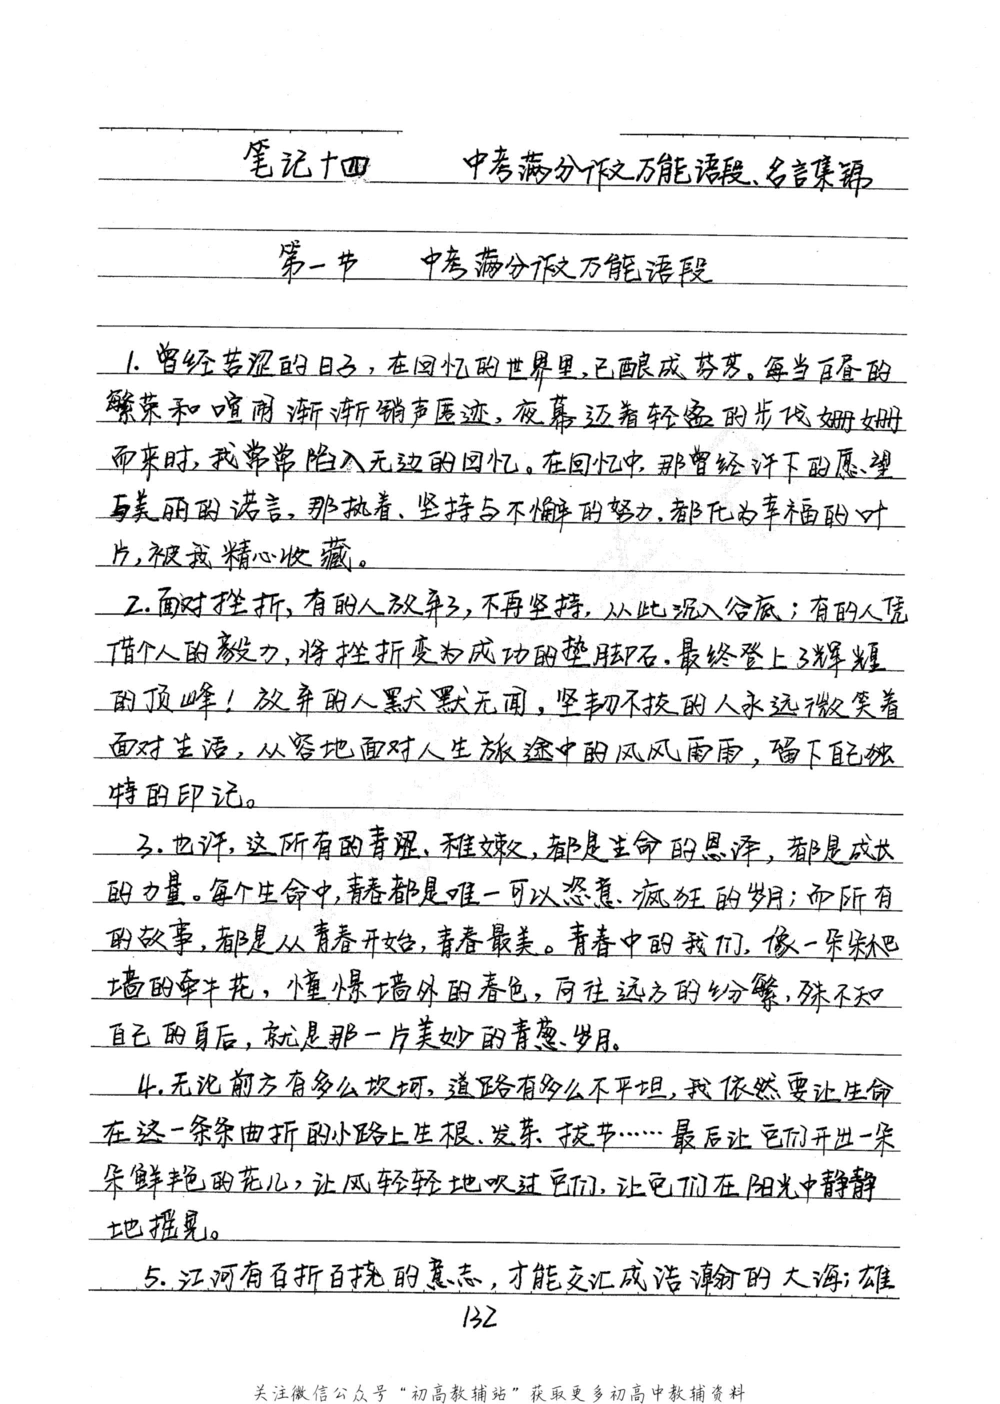 笔记十四 中考满分作文万能语段、名言集锦
第一节 中考满分作文万能语段
1.曾经苦涩的日子,在回忆的世界里,已酿成芬芳。每当白昼的
繁荣和喧闹渐渐销声匿迹,夜幕迈着轻盈的步伐姗姗
而来时,我常常陷入无边的回忆。在回忆中,那曾经许下的愿望
与美丽的诺言,那执着、坚持与不懈的努力,都化为幸福的叶
片,被我精心收藏。
2.面对挫折,有的人放弃了,不再坚持,从此沉入谷底;有的人凭
借个人的毅力,将挫折变为成功的垫脚石,最终登上了辉煌
的顶峰!放弃的人默默无闻,坚韧不拔的人永远微笑着
面对生活,从容地面对人生旅途中的风风雨雨,留下自己独
特的印记。
3.也许,这所有的青涩、稚嫩,都是生命的恩泽,都是成长
的力量。每个生命中,青春都是唯一可以恣意、疯狂的岁月;而所有
的故事,都是从青春开始,青春最美。青春中的我们,像一朵朵爬
墙的牵牛花,憧憬墙外的春色,向往远方的纷繁,殊不知
自己的身后,就是那一片美妙的青葱岁月。
4.无论前方有多么坎坷,道路有多么不平坦,我依然要让生命
在这一条条曲折的小路上生根、发芽、拔节……最后让它们开出一朵
朵鲜艳的花儿,让风轻轻地吹过它们,让它们在阳光中静静
地摇晃。
5.江河有百折百挠的意志,才能交汇成浩瀚的大海;雄
132
关注微信公众号“初高教辅站”获取更多初高中教辅资料